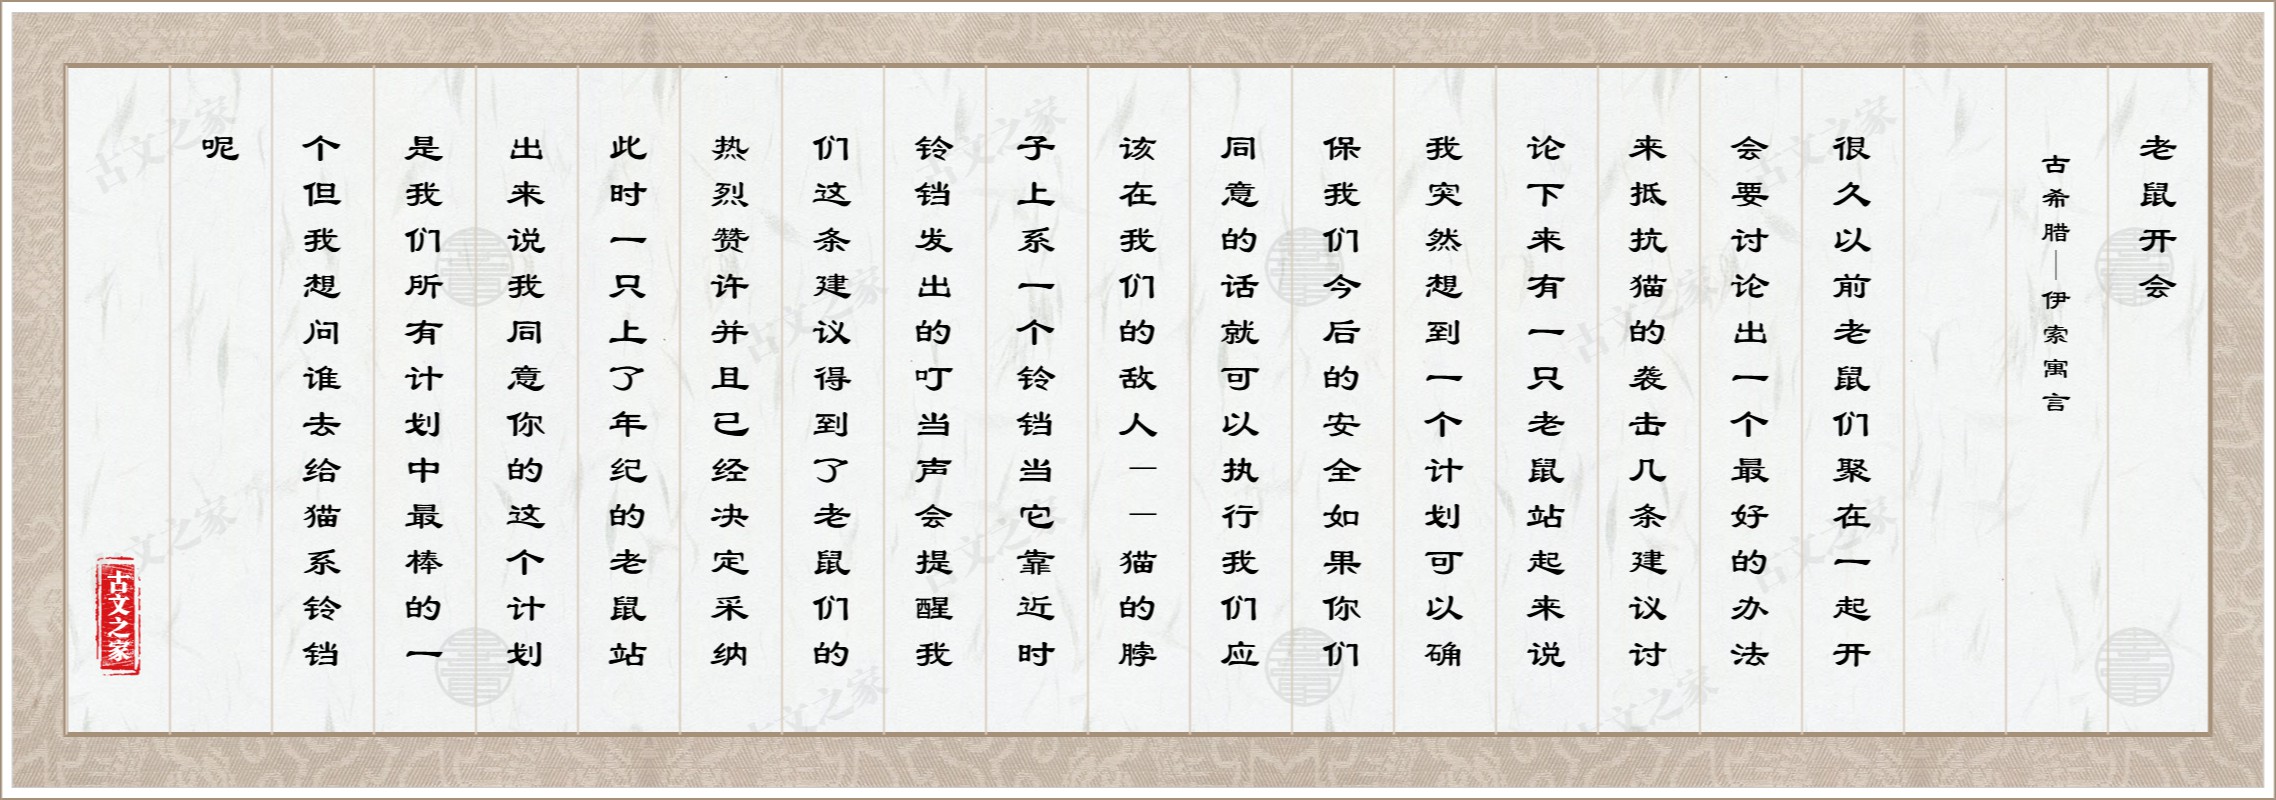 老鼠开会
古希腊—伊索寓言
很久以前老鼠们聚在一起开
会要讨论出一个最好的办法
来抵抗猫的袭击几条建议讨
论下来有一只老鼠站起来说
我突然想到一个计划可以确
保我们今后的安全如果你们
同意的话就可以执行我们应
该在我们的敌人——猫的脖
子上系一个铃铛当它靠近时
铃铛发出的叮当声会提醒我
们这条建议得到了老鼠们的
热烈赞许并且已经决定采纳
此时一只上了年纪的老鼠站
出来说我同意你的这个计划
是我们所有计划中最棒的一
个但我想问谁去给猫系铃铛
呢
古文之家